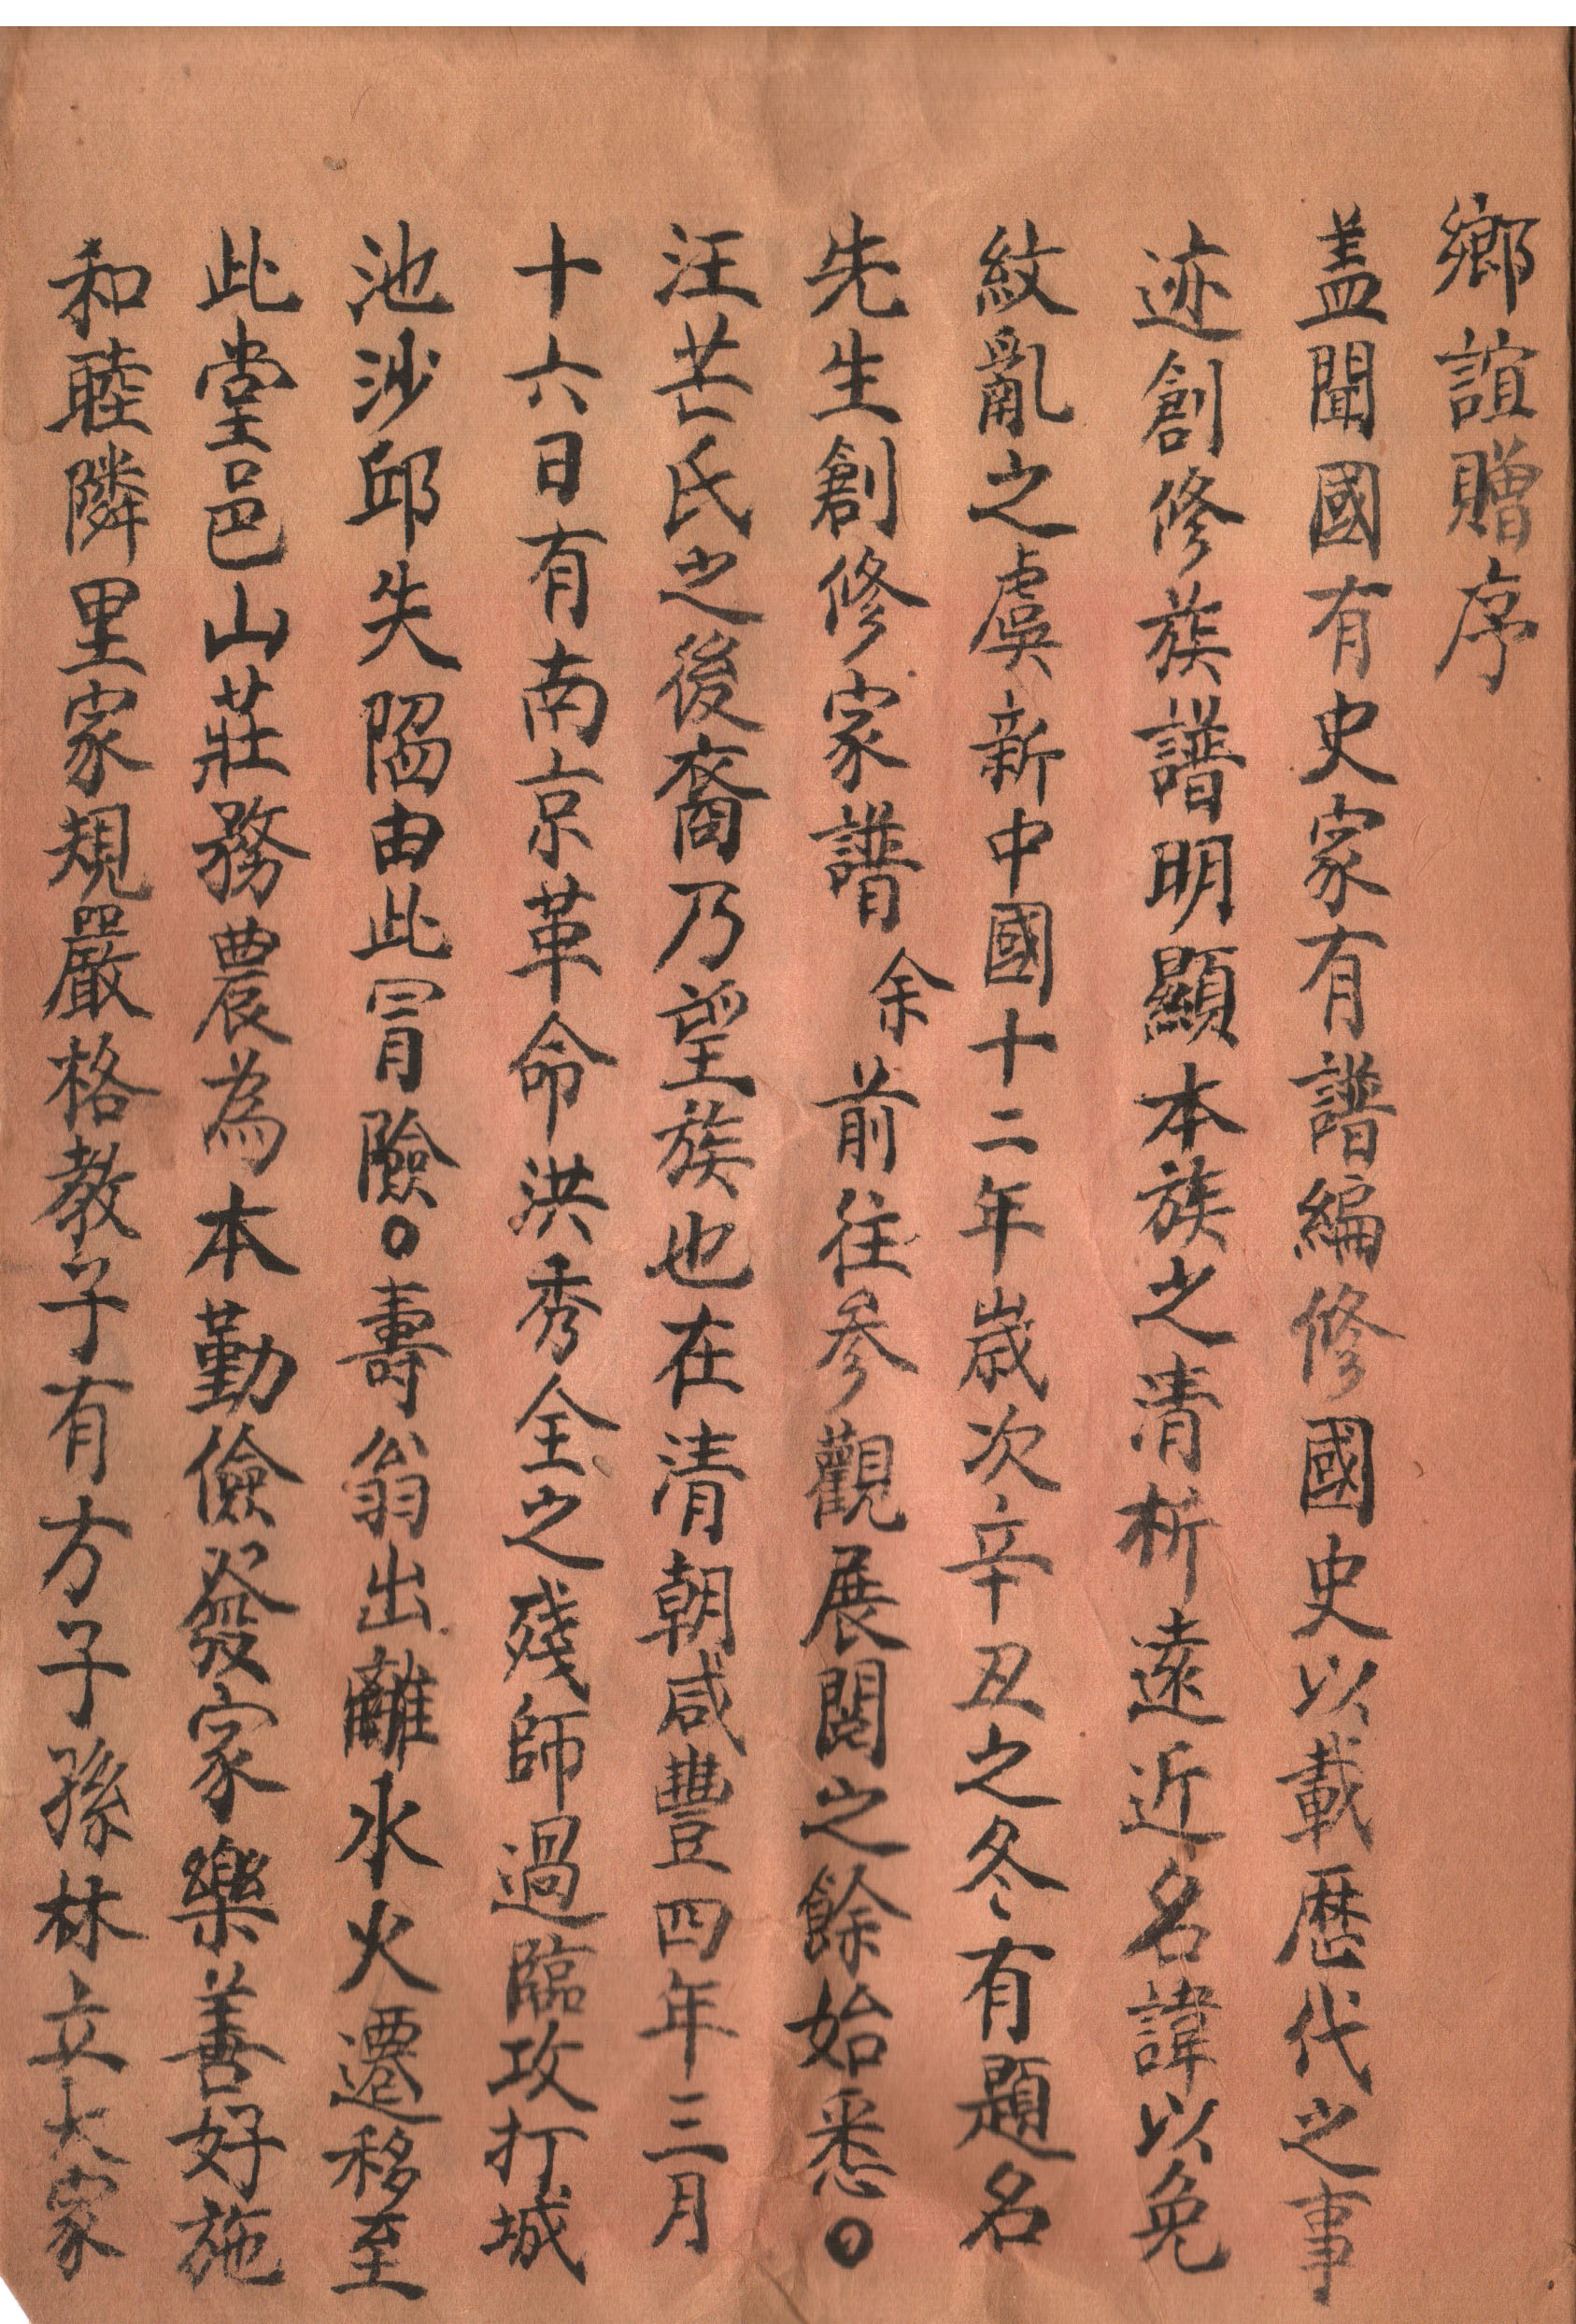 鄉誼贈序
盖聞國有史家有譜編修國史以載歷代之事
迹創修族譜明顯本族之清析遠近名諱以免
紋亂之虞新中國十二年歲次辛丑之冬有題名
先生創修家譜余前往參觀展閱之餘始悉。
汪芒氏之後裔乃望族也在清朝咸豐四年三月
十六日有南京革命洪秀全之殘師過臨攻打城
池沙邱失陷由此冒險。壽翁出離水火遷移至
此堂邑山莊務農為本勤儉發家樂善好施
和睦隣里家規嚴格教子有方子孫林立大家